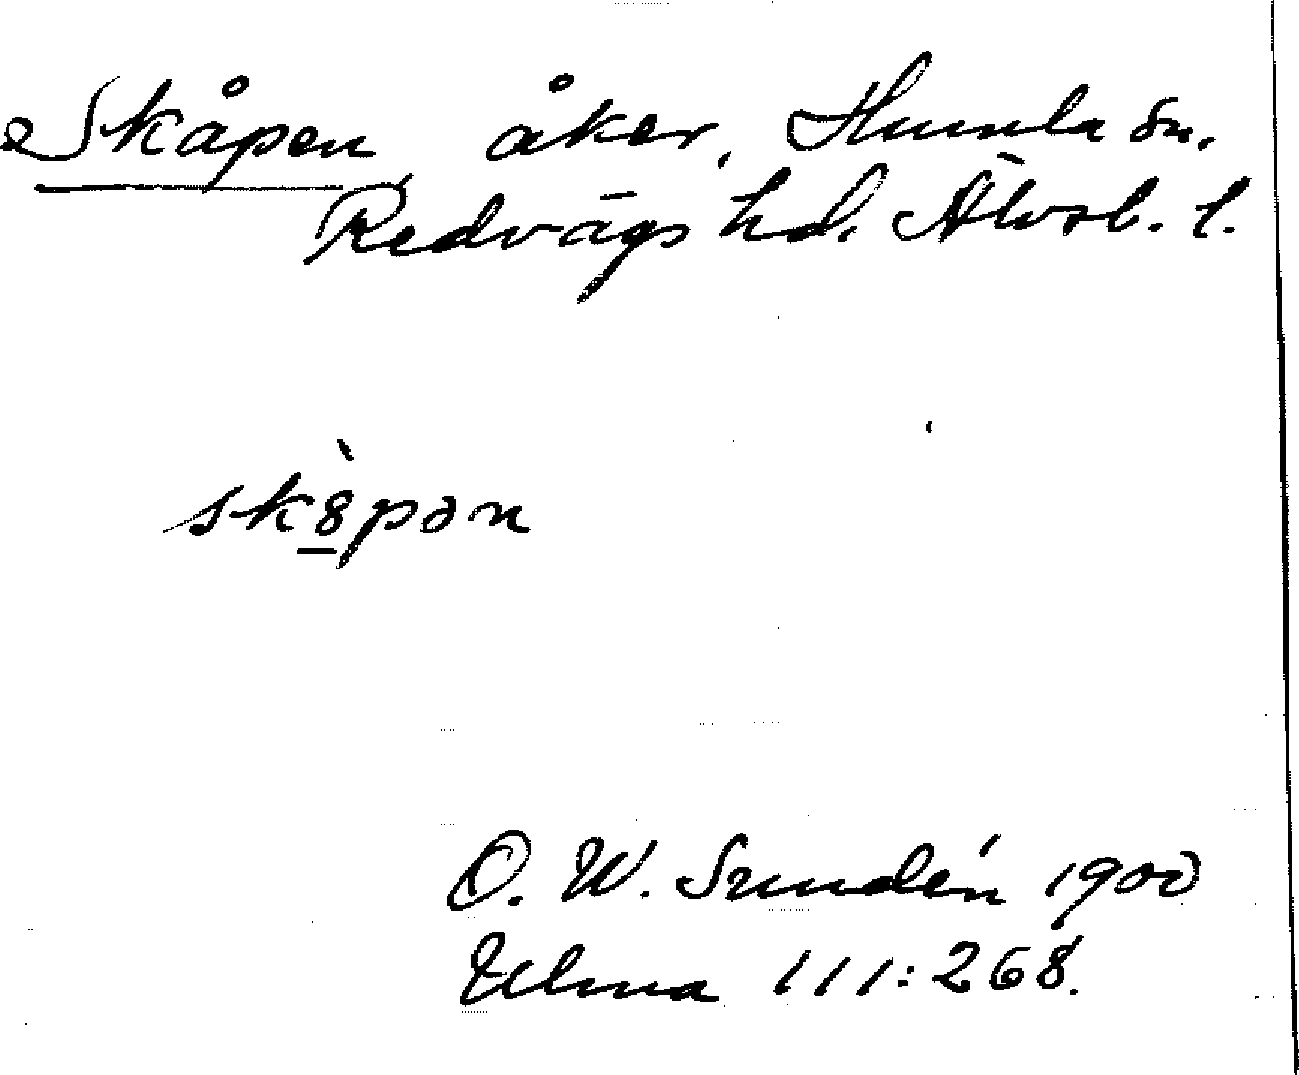 Skåpen, åker, Humla sn.
Redvägs hd. Älvsb. l.
sk8̀pən
O. W. Sundén 1900
Ulma 111:268.